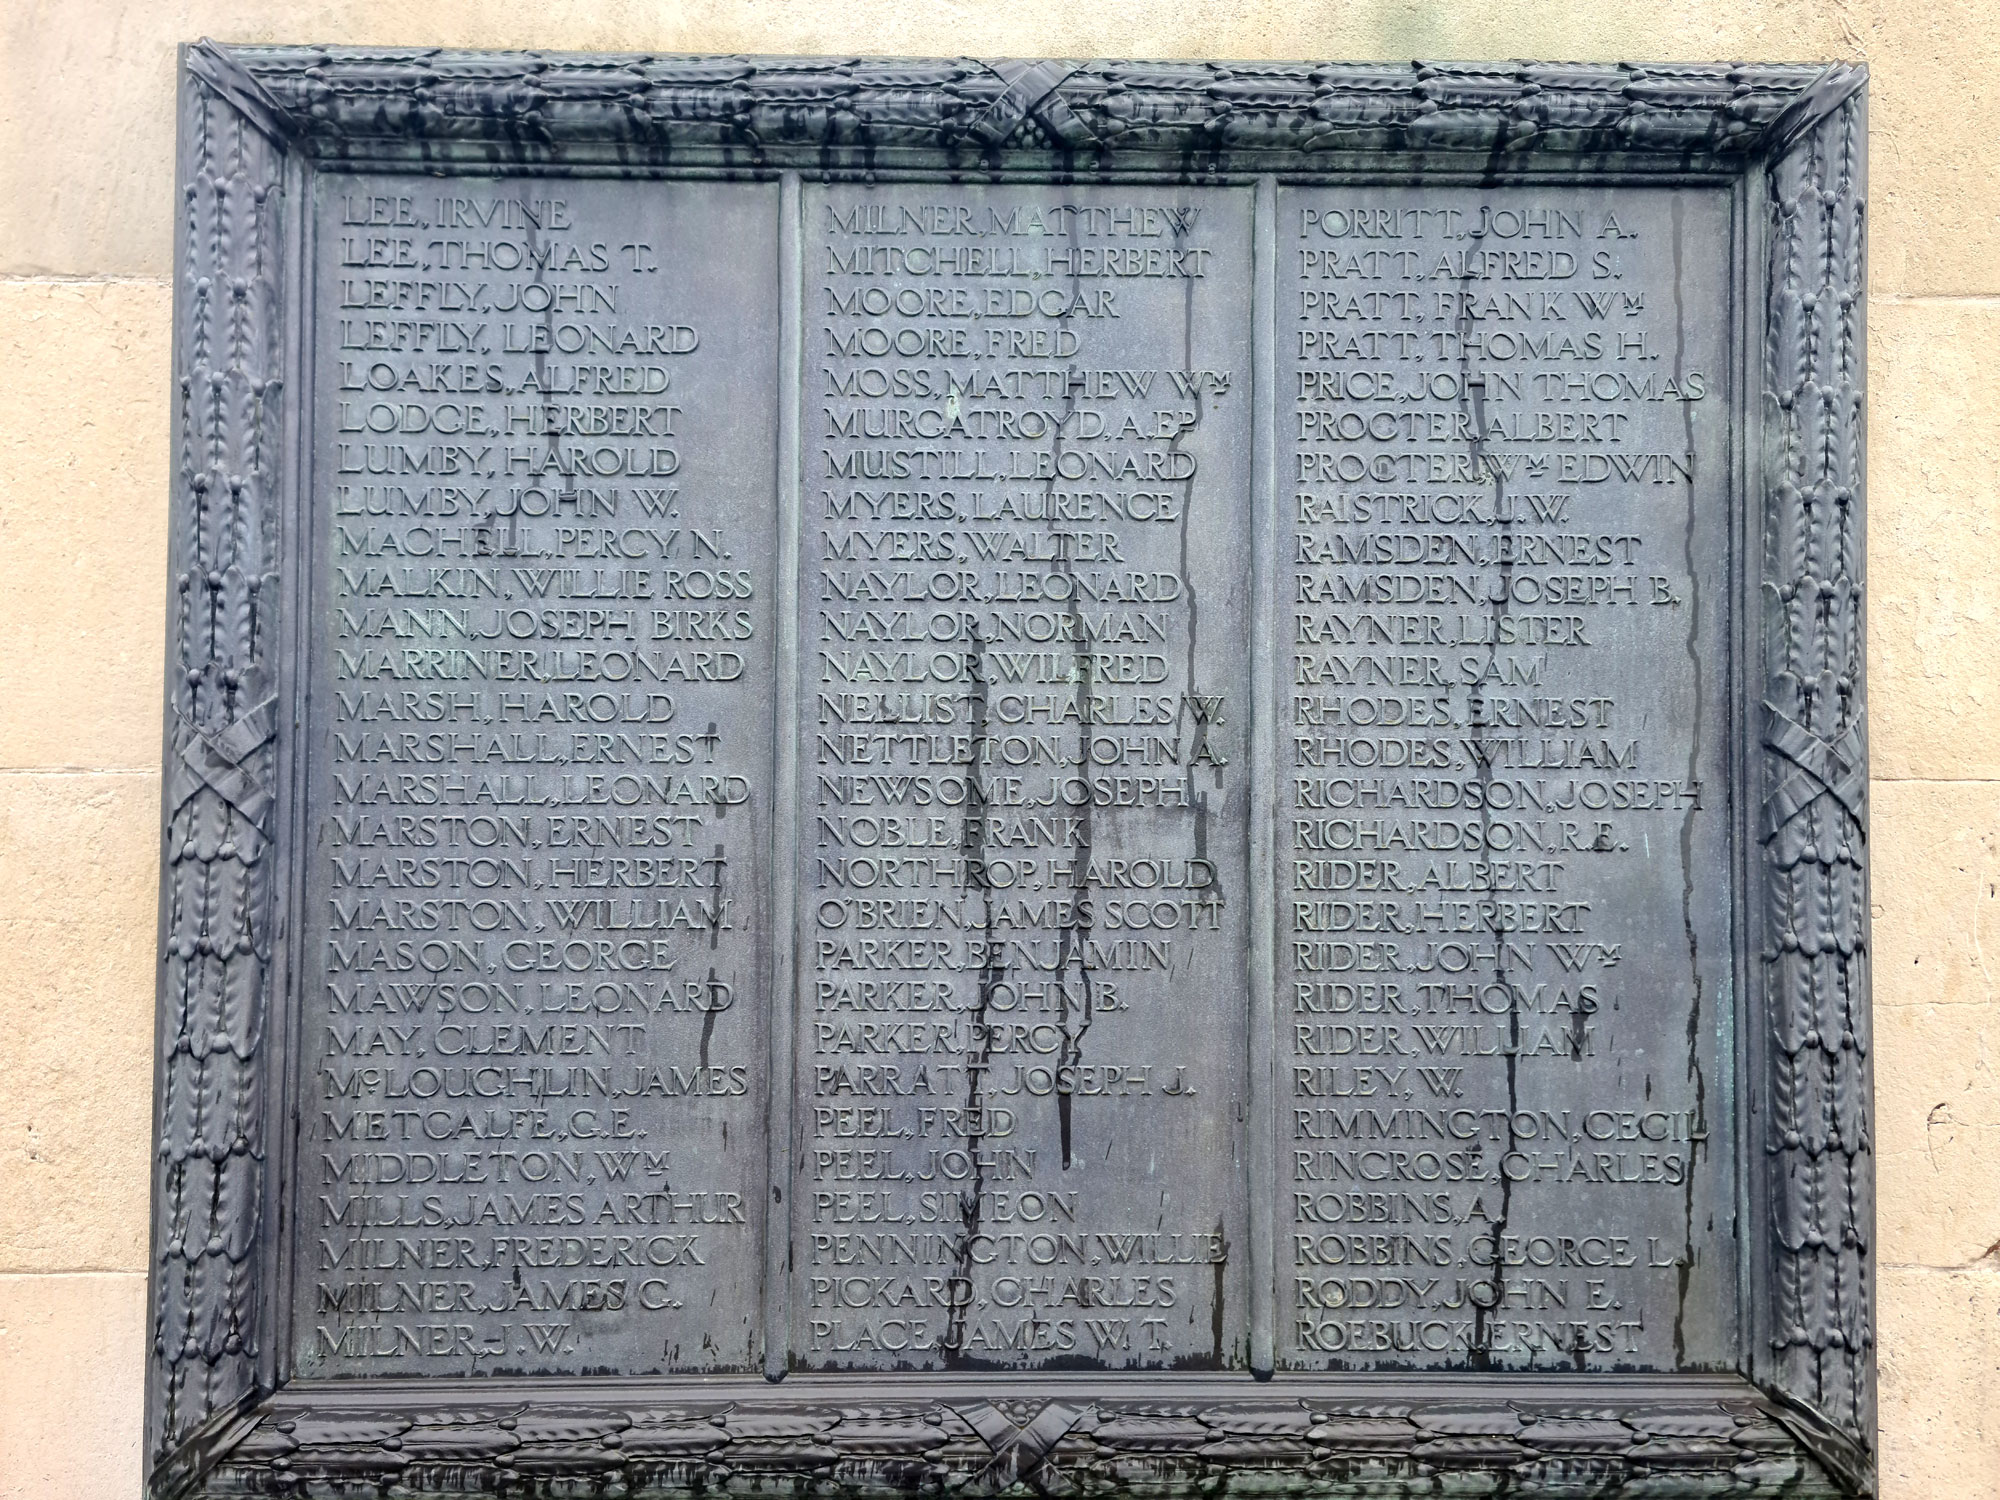 LEE, IRVINE
LEE, THOMAS T.
LEFFLY, JOHN
LEFFLY, LEONARD
LOAKES, ALFRED
LODGE, HERBERT
LUMBY, HAROLD
LUMBY, JOHN W.
MACHELL, PERCY N.
MALKIN, WILLIE ROSS
MANN, JOSEPH BIRKS
MARRINER, LEONARD
MARSH, HAROLD
MARSHALL, ERNEST
MARSHALL, LEONARD
MARSTON, ERNEST
MARSTON, HERBERT
MARSTON, WILLIAM
MASON, GEORGE
MAWSON, LEONARD
MAY, CLEMENT
McLOUGHLIN, JAMES
METCALFE, G.E.
MIDDLETON, WM
MILLS, JAMES ARTHUR
MILNER, FREDERICK
MILNER, JAMES G.
MILNER, J.W.
MILNER, MATTHEW
MITCHELL, HERBERT
MOORE, EDGAR
MOORE, FRED
MOSS, MATTHEW WM
MURGATROYD, A.E.P.
MUSTILL, LEONARD
MYERS, LAURENCE
MYERS, WALTER
NAYLOR, LEONARD
NAYLOR, NORMAN
NAYLOR, WILFRED
NELLIST, CHARLES W.
NETTLETON, JOHN A.
NEWSOME, JOSEPH
NOBLE, FRANK
NORTHROP, HAROLD
O'BRIEN, JAMES SCOTT
PARKER, BENJAMIN
PARKER, JOHN B.
PARKER, PERCY
PARRATT, JOSEPH J.
PEEL, FRED
PEEL, JOHN
PEEL, SIMEON
PENNINGTON, WILLIE
PICKARD, CHARLES
PLACE, JAMES W.T.
PORRITT, JOHN A.
PRATT, ALFRED S.
PRATT, FRANK WM
PRATT, THOMAS H.
PRICE, JOHN THOMAS
PROCTER, ALBERT
PROCTER, WM EDWIN
RAISTRICK, J.W.
RAMSDEN, ERNEST
RAMSDEN, JOSEPH B.
RAYNER, LISTER
RAYNER, SAM
RHODES, ERNEST
RHODES, WILLIAM
RICHARDSON, JOSEPH
RICHARDSON, R.E.
RIDER, ALBERT
RIDER, HERBERT
RIDER, JOHN WM
RIDER, THOMAS
RIDER, WILLIAM
RILEY, W.
RIMMINGTON, CECIL
RINGROSE, CHARLES
ROBBINS, A.
ROBBINS, GEORGE L.
RODDY, JOHN E.
ROEBUCK, ERNEST